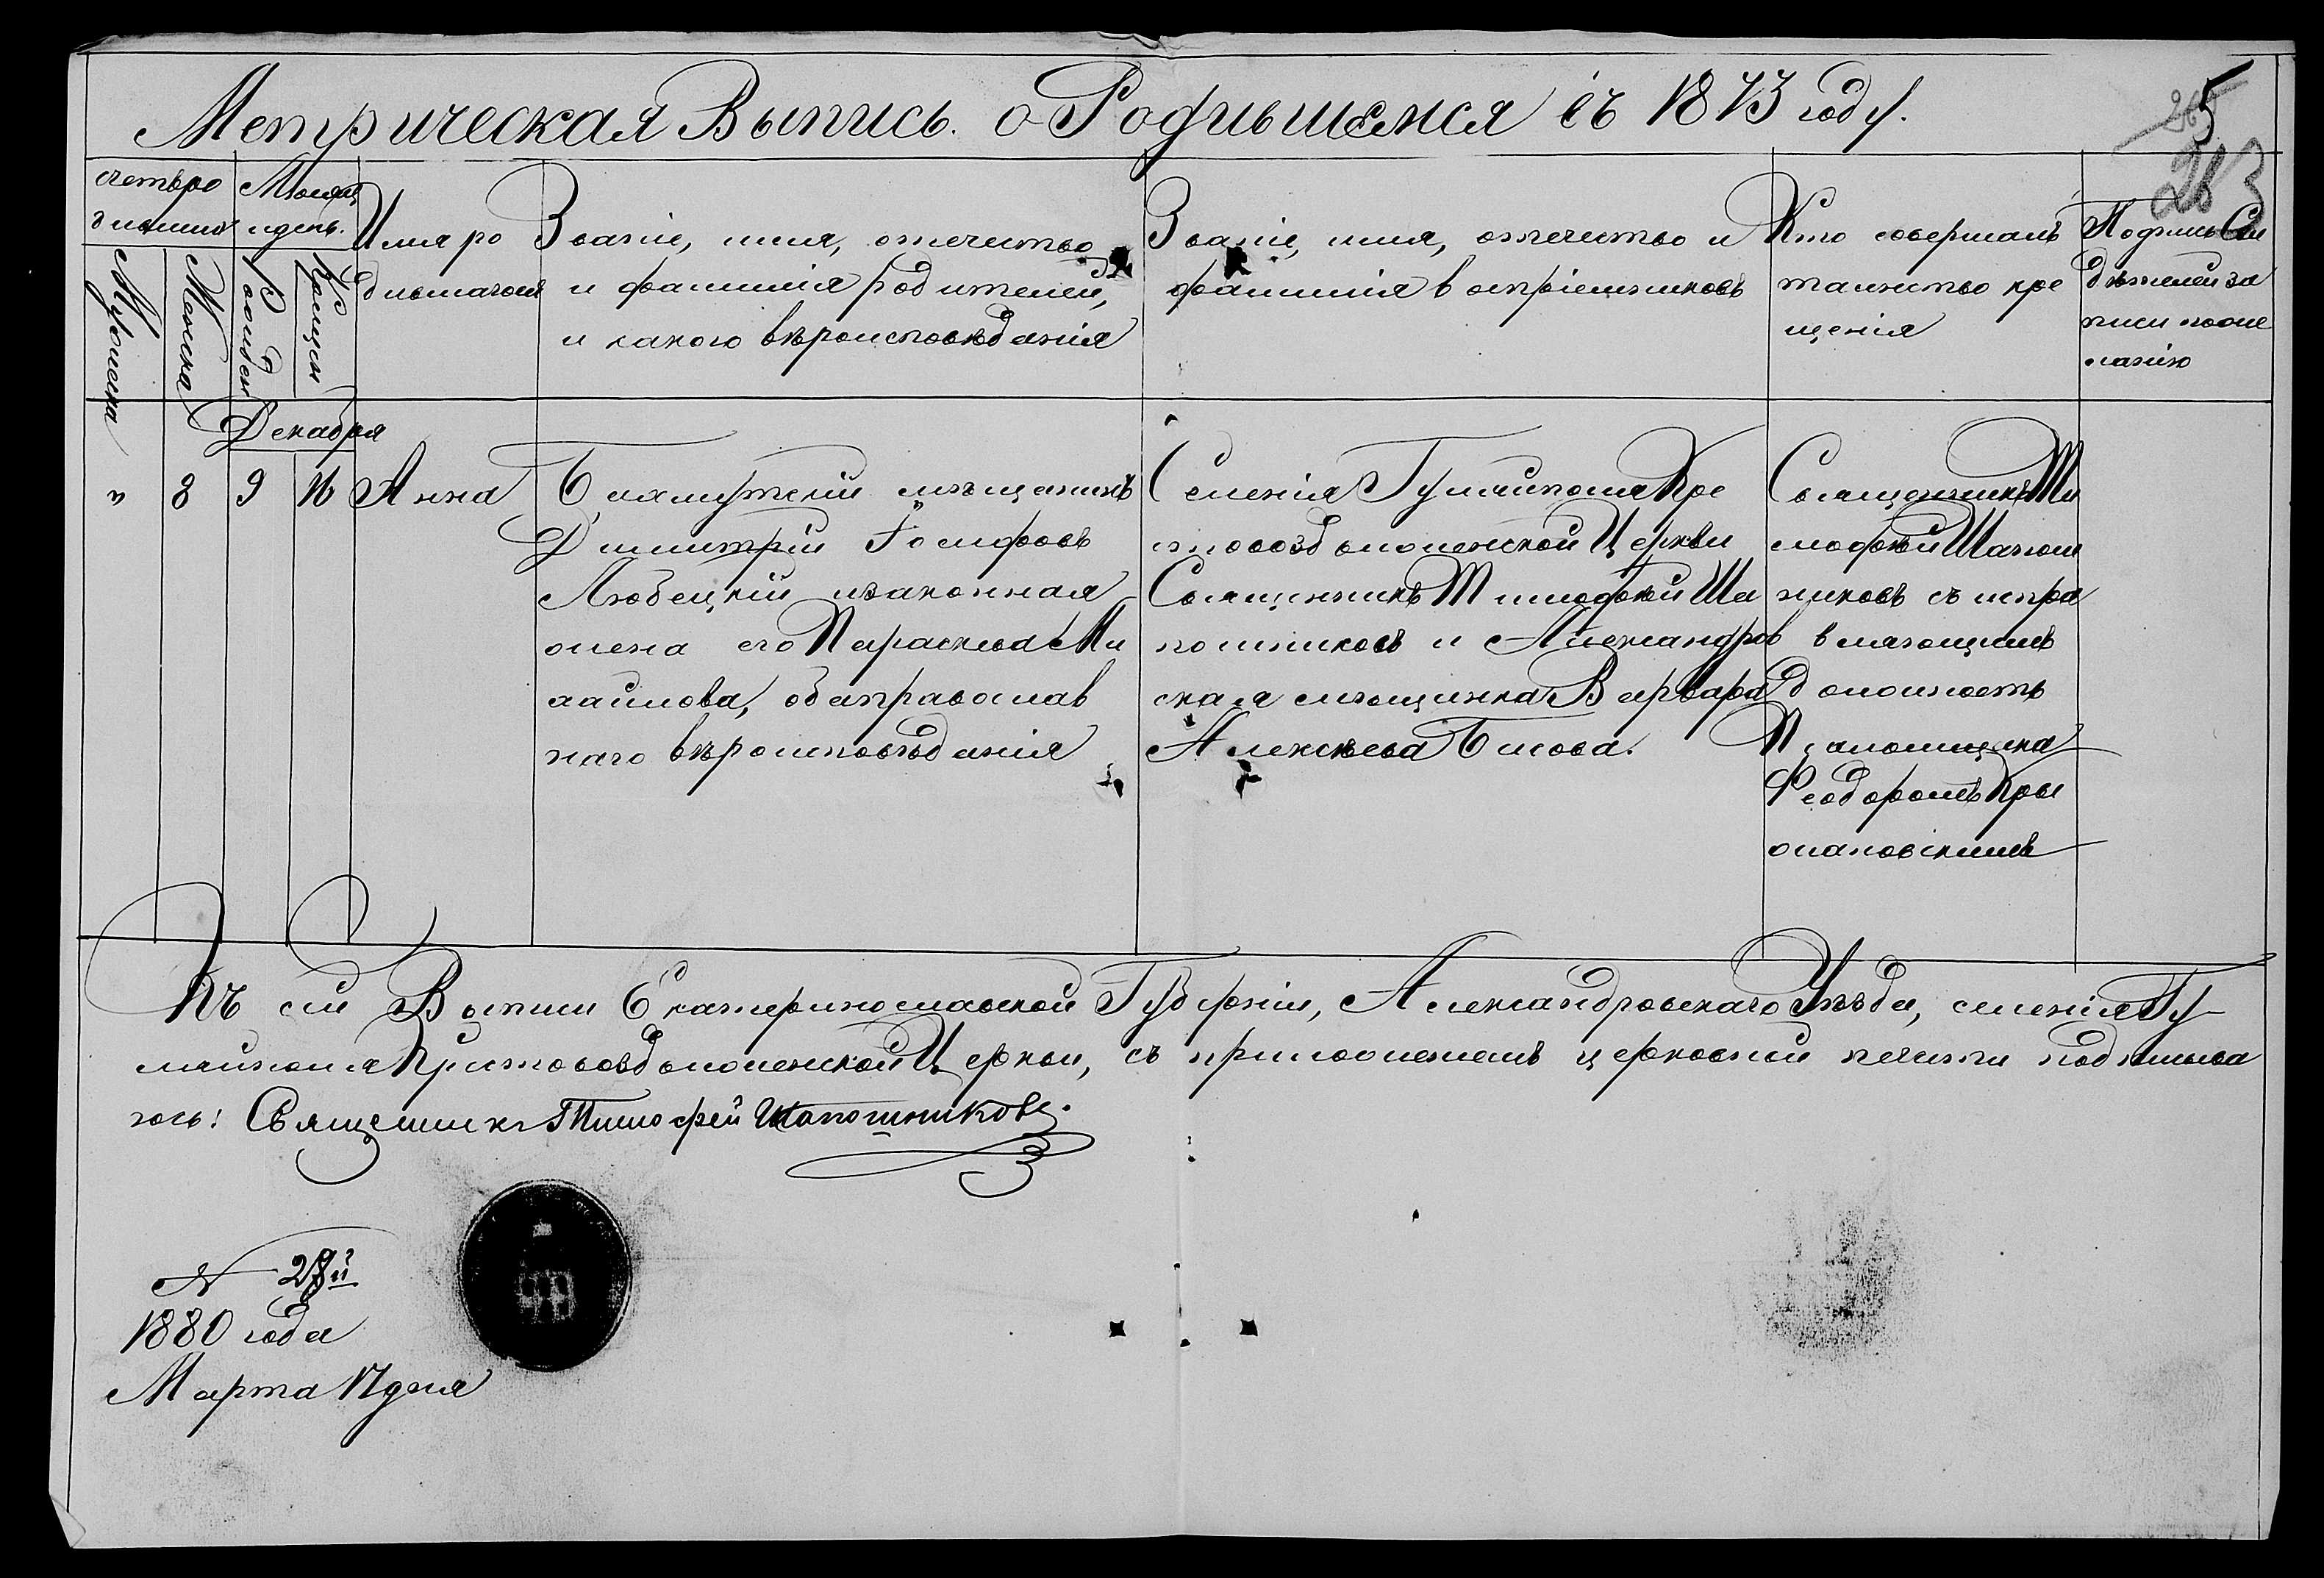 Метрическая Выпись о Родившемся въ 1873 году.
5
263
счетъ ро
дившихся
Мѣсяцъ
и день.
Мужеска
Женска
Рожден
Крещен
Имя ро
дившагося
Званіе, имя, отечество
и фамилія родителей,
и какого вѣроисповѣданія
Званіе, имя, отечество и
фамилія воспріемниковъ
Кто совершалъ
таинство кре
щенія
Подпись Сви
дѣтелей за
писи по же
ланію
Декабря
"
8
9
16
Анна
Бахмутскій мѣщанинъ
Димитрій Іосифовъ
Любецкій и законная
жена его Параскева Ми
хаилова, оба православ
наго вѣроисповѣданія
Селенія Гуляйполя Кре
стовоздвиженской Церкви
Священникъ Тимофѣй Ша
пошниковъ и Александров
ская мѣщанка Варвара
Алексѣева Бѣлова.
Священникъ Ти
мофѣй Шапош
никовъ съ испра
вляющимъ
должность
Псаломщика
Феодоромъ Кры
жановскимъ
Къ сей Выписи Екатеринославской Губерніи, Александровскаго Уѣзда, селенія Гу-
ляйполя Кристовоздвиженской Церкви, съ приложеніемъ церковной печати подписыва
юсь: Священникъ Тимофей Шапошниковъ.
№ 28й
1880 года
Марта 17 дня